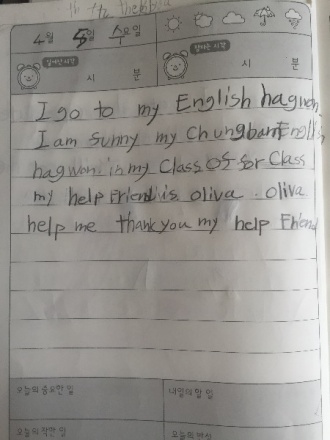 4월 5일 수요일
일어난 시각
시 분
잠자는 시각
시 분
I go to my English hagwon
I am Sunny my Chungbam English
hagwon. in my Class OF for Class
my help Friend is oliva. oliva
help me thank you my help Friend
오늘의 중요한 일
내일의 할 일
오늘의 착한 일
오늘의 반성